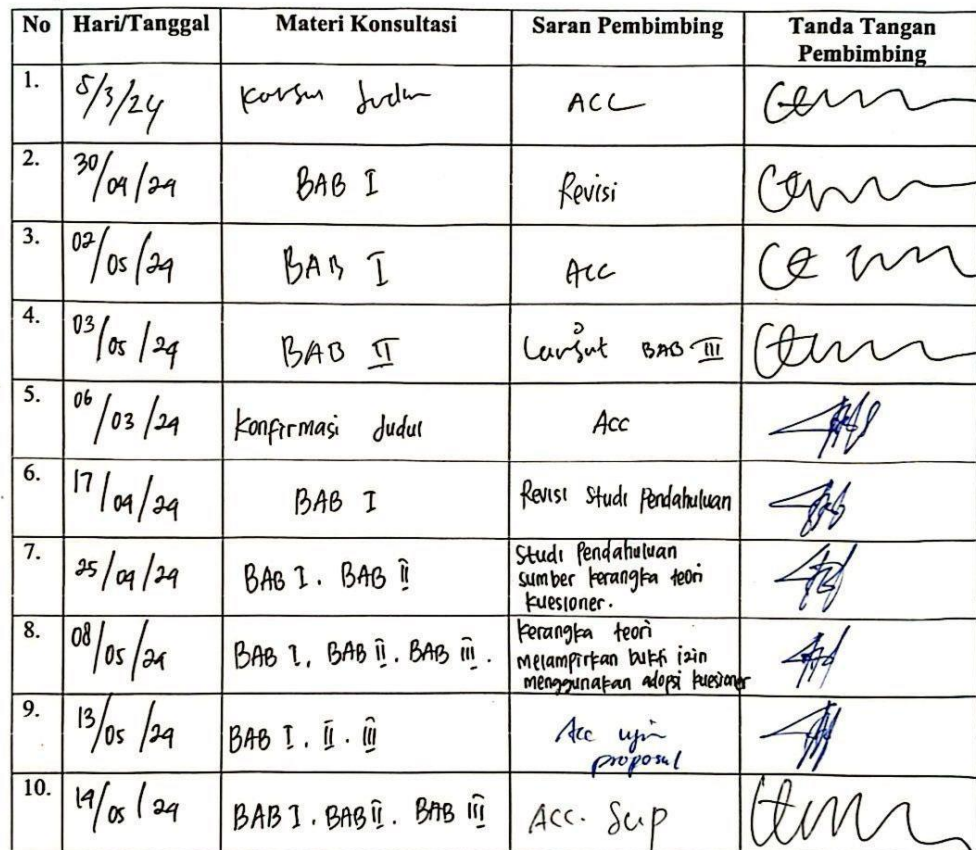 No Hari/Tanggal Materi Konsultasi Saran Pembimbing Tanda Tangan
Pembimbing
1. 5/3/24 Konsul Judul ACC
2. 30/04/24 BAB I Revisi
3. 02/05/24 BAB I Acc
4. 03/05/24 BAB II Lanjut BAB III
5. 06/03/24 Konfirmasi Judul Acc
6. 17/04/24 BAB I Revisi Studi Pendahuluan
7. 25/04/24 BAB I. BAB II Studi Pendahuluan
sumber kerangka teori
kuesioner.
8. 08/05/24 BAB I. BAB II. BAB III. kerangka teori
melampirkan bukti izin
menggunakan adopsi kuesioner
9. 13/05/24 BAB I. II. III Acc ujin
proposal
10. 14/05/24 BAB I. BAB II. BAB III ACC.